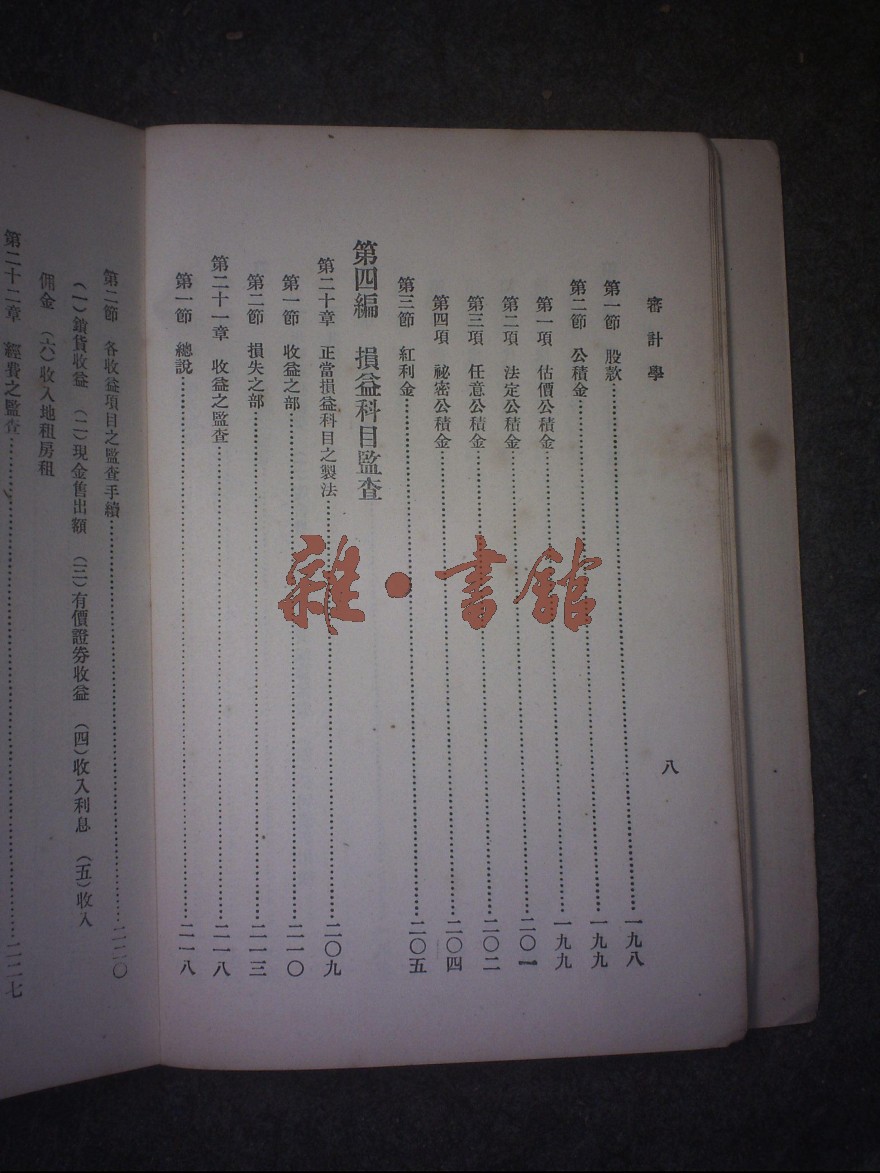 審計學
八
第一節 股款……一九八
第二節 公積金……一九九
第一項 估價公積金……一九九
第二項 法定公積金……二〇一
第三項 任意公積金……二〇二
第四項 祕密公積金……二〇四
第三節 紅利金……二〇五
第四編 損益科目監查
第二十章 正當損益科目之製法……二〇九
第一節 收益之部……二一〇
第二節 損失之部……二一三
第二十一章 收益之監查……二一八
第一節 總說……二一八
第二節 各收益項目之監查手續……二二〇
(一)銷貨收益 (二)現金售出額 (三)有價證券收益 (四)收入利息 (五)收入
佣金 (六)收入地租房租
第二十二章 經費之監查……二二七
雜·書館